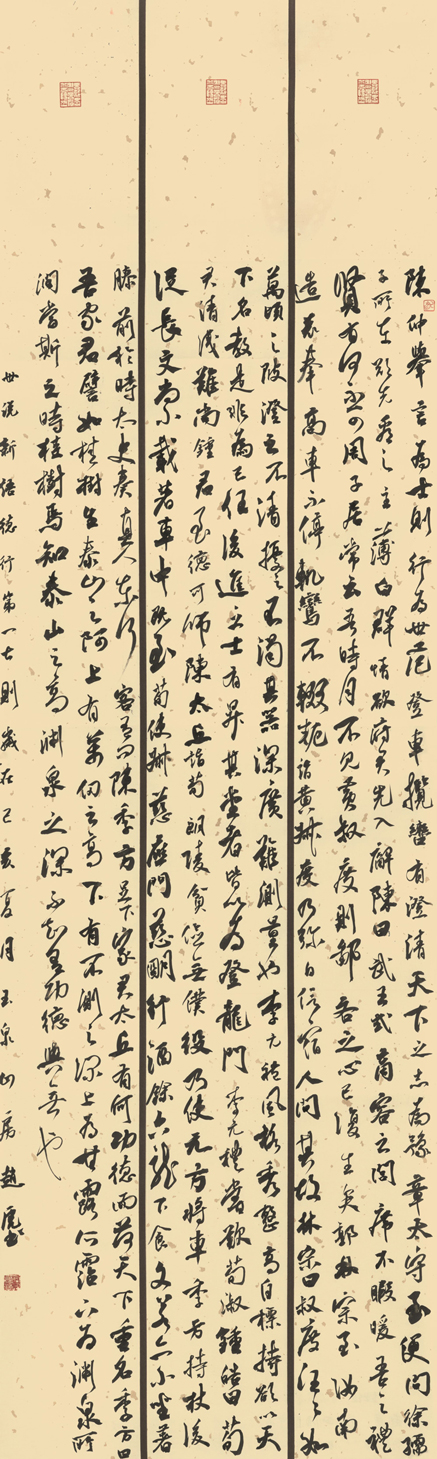 陳仲舉言為士則行為世范登車攬轡有澄清天下之志為豫章太守至便問徐孺
子所在欲先看之主薄白群情欲府君先入廨陳曰武王式商容之閭席不暇暖吾之禮
賢有何不可周子居常云吾時月不見黃叔度則鄙吝之心已復生矣郭林宗至汝南
造袁奉高車不停軌鸞不輟軛詣黃叔度乃彌日信宿人問其故林宗曰叔度汪汪如
萬頃之陂澄之不清擾之不濁其器深廣難測量也李元禮風格秀整高自標持欲以天
下名教是非為己任後進之士有昇其堂者皆以為登龍門李元禮嘗歎荀淑鍾皓曰荀
君清識難尚鍾君至德可師陳太丘詣荀朗陵貧儉無僕役乃使元方將車季方持杖後
從長文尚小載著車中既至荀使叔慈應門慈明行酒餘六龍下食文若亦小坐著
膝前於時太史奏真人東行客有問陳季方足下家君太丘有何功德而荷天下重名季方曰
吾家君譬如桂樹生泰山之阿上有萬仞之高下有不測之深上為甘露所霑下為淵泉所
潤當斯之時桂樹焉知泰山之高淵泉之深不知有功德與無也
世說新語德行第一七則歲在己亥夏月玉泉山房趙